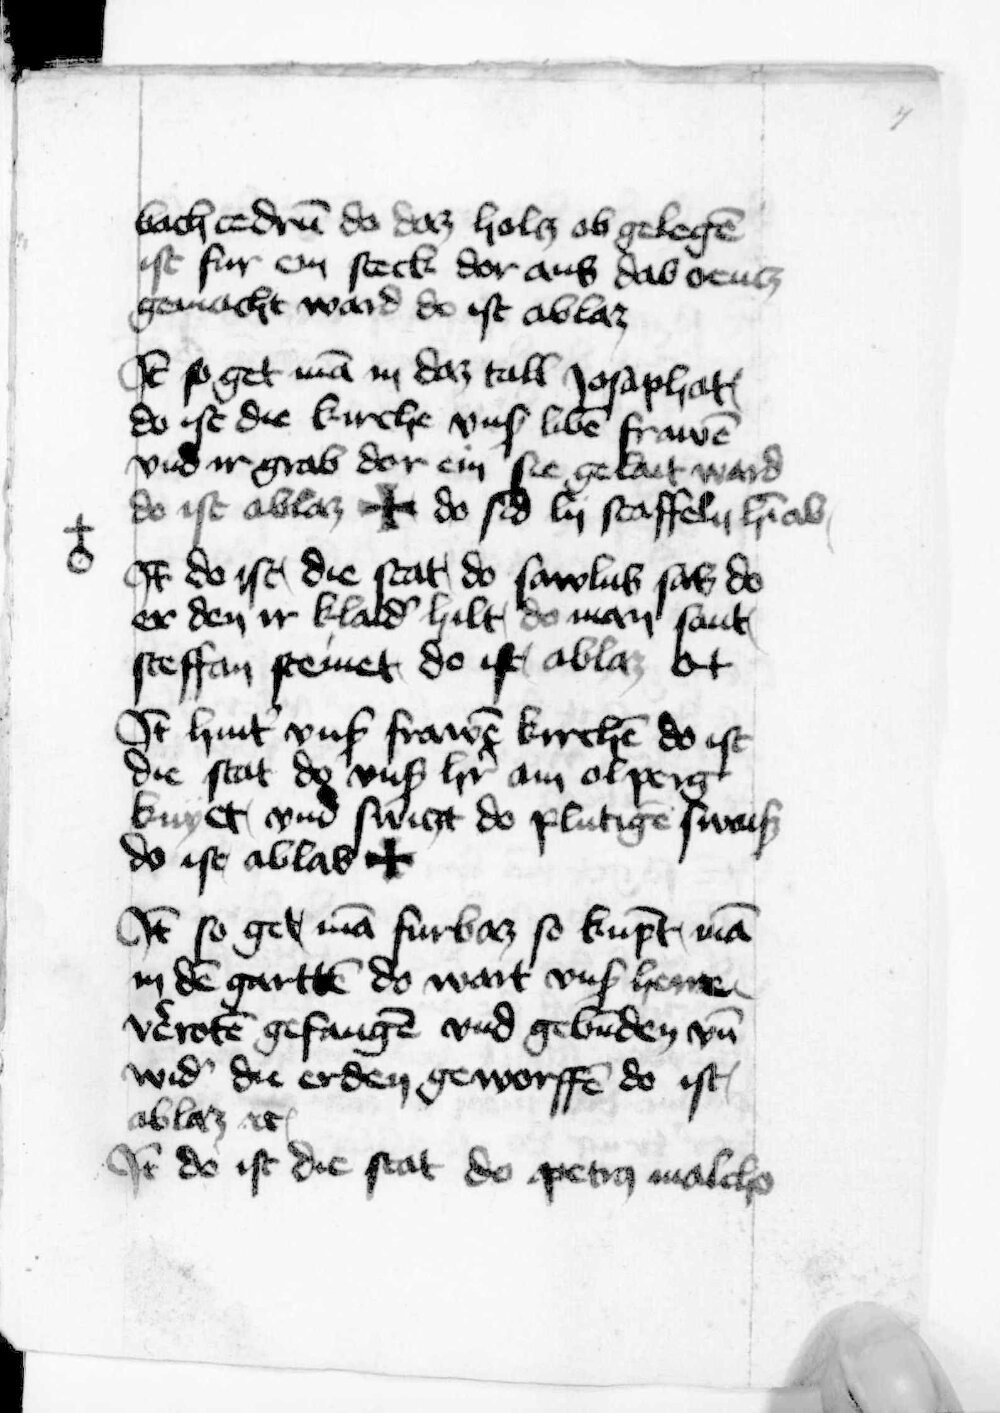 7
bach cedrū do daz holcz ob gelegē
ist fur ein steck dor aus das creucz
gemacht ward do ist ablaz
Jt̄ so get mā in daz tall Josaphat
do ist die kirche vnsʼ libē frawē
vnd ir grab dor ein sie gelait ward
do ist ablaz ✠ do sīd lij staffeln hīab
Jt̄ do ist die stat do sawlus sas do
er den ir klaidʼ hilt do man sant
steffan steinet do ist ablaz
Jt̄ hintʼ vnsʼ frawē kirchē do ist
die stat do vnsʼ hʼr am olperg
knyet vnd swiczt do plutigē swaisz
do ist ablas ✠
Jt̄ so get mā furbaz so kūpt mā
in dē gartē do wart vnsʼ herre
vʼrotē gefangē vnd gebūden vn̄
widʼ die erden geworffē do ist
ablaz etc̄
Jt̄ do ist die stat do petrꝯ malcho